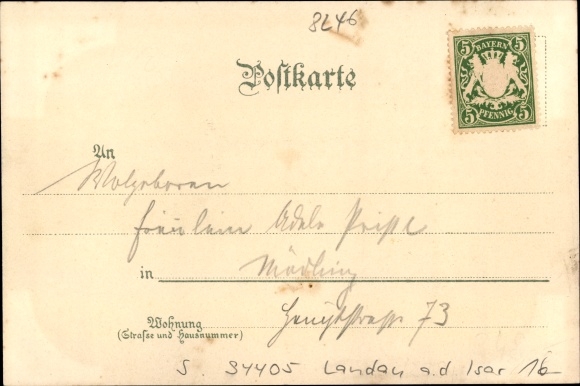 8246
Postkarte
5 BAYERN 5
5 PFENNIG 5
An
Wolgeboren
Fräulein Adele
in Mödling
Wohnung Hauptstrasse 73
(Straße und Hausnummer)
S. 94405 Landau a.d Isar 16-